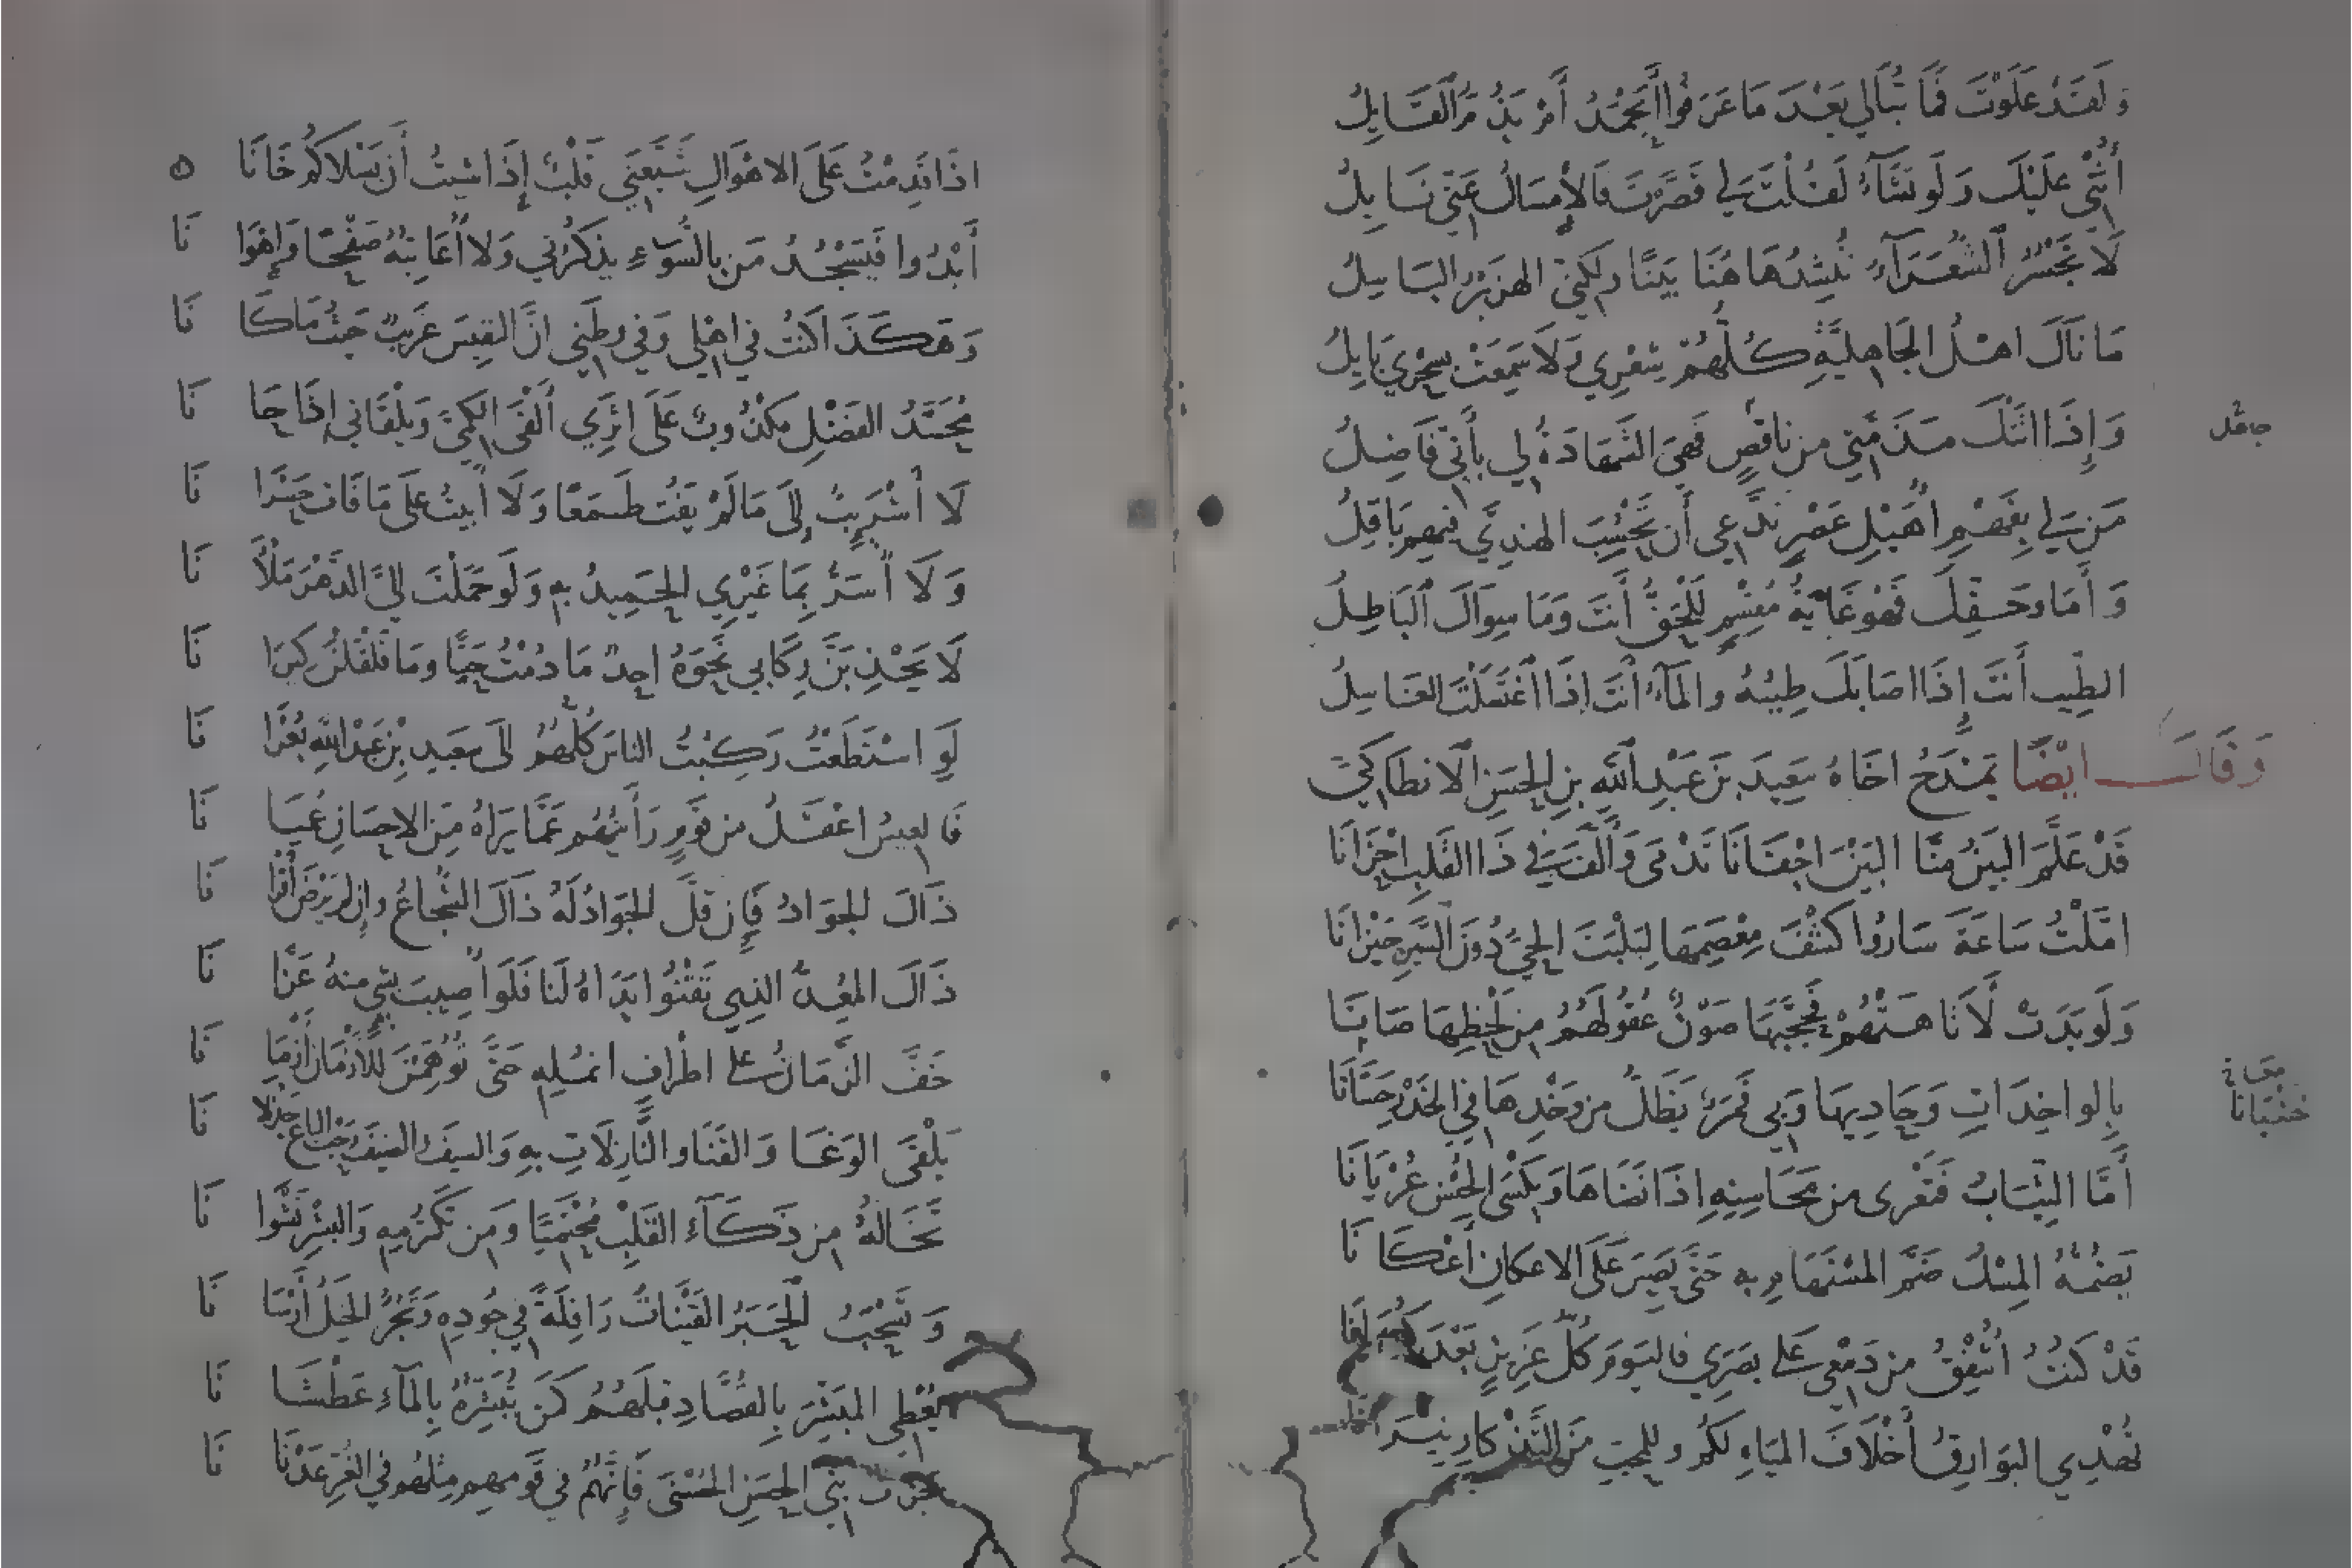 وَلَقَدْ عَلَوْتَ فَمَا تُبَالِي بَعْدَ مَا عَرَفُوا أَيُحْمَدُ أَمْ يَذُمُّ القَائِلُ
أُثْنِي عَلَيْكَ وَلَو تَشَآءُ لَقُلْتَ لِي قَصَّرْتَ فَالإِمْسَاكُ عَنِّي نَايِلُ
لَا تَجْسُرُ الشُّعَرَآءُ تُنْشِدُ هَاهُنَا بَيْتًا وَلكِنِّي الهِزَبْرُ البَاسِلُ
مَا نَالَ اهْلُ الجَاهِلِيَّةِ كُلُّهُمْ شِعْرِي وَلَا سَمِعَتْ بِسِحْرِيَ بَابِلُ
وَإِذَا اتَتْكَ مَذَمَّتِي مِن نَاقِصٍ فَهِيَ الشَّهَادَةُ لِي بِأَنِّي فَاضِلُ
جاهل
مَن لِي بِفَهْمِ أُهَيْلِ عَصْرٍ يَدَّعِي أَن يَحْسُبَ الهِنْدِيَّ فِيهِم بَاقِلُ
وَأَمَا وَحَقِّكَ فَهْوَ غَايَةُ مُقْسِمٍ لَلْحَقُّ أَنتَ وَمَا سِوَاكَ البَاطِلُ
الطِّيبُ أَنتَ إِذَا اصَابَكَ طِيبُهُ وَالمَآءُ أَنتَ إِذَا اغْتَسَلْتَ الغَاسِلُ
وَقَالَ ايْضًا يَمْدَحُ اخَاهُ سَعِيدَ بنَ عَبْدِ اللهِ بنِ الحَسَنِ الانطَاكِيّ
قَدْ عَلَّمَ البَيْنُ مِنَّا البَيْنَ اجْفَانَا تَدْمَى وَأَلَّفَ فِي ذَا القَلْبِ احْزَانَا
امَّلْتُ سَاعَةَ سَارُوا كَشْفَ مِعْصَمِهَا لِيَلْبَثَ الحَيُّ دُونَ السَّيرِ حَيْرَانَا
وَلَو بَدَتْ لَأَتَاهَتْهُمْ فَحَجَّبَهَا صَوْنٌ عُقُولَهُمُ مِن لَحْظِهَا صَانَا
بِالوَاخِدَاتِ وَحَادِيهَا وَبِي قَمَرٌ يَظَلُّ مِن وَخْدِهَا فِي الخِدْرِ حَشْيَانَا
خَشْيَانَا
أَمَّا الثِّيَابُ فَتَعْرَى مِن مَحَاسِنِهِ إِذَا نَضَاهَا وَيَكْسَى الحُسْنَ عُرْيَانَا
يَضُمُّهُ المِسْكُ ضَمَّ المُسْتَهَامِ بِهِ حَتَّى يَصِيرَ عَلَى الاعكَانِ أَعْكَانَا
قَدْ كُنْتُ اشْفِقُ مِن دَمْعِي عَلَى بَصَرِي فَاليَومَ كُلُّ عَزِيزٍ بَعْدَكُم هَانَا
تُهْدِي البَوَارِقُ أَخْلَافَ المِيَاهِ لَكُم وَلِلمُحِبِّ مِنَ التَّذْكَارِ نِيرَانَا
اذَا قَدِمْتُ عَلَى الاهْوَالِ شَيَّعَنِي قَلْبٌ إِذَا شِيتُ أَن يَسْلَاكُمُ خَانَا
أَبْدُوا فَيَسْجُدُ مَن بِالسُّوءِ يَذكُرُنِي وَلَا أُعَاتِبُهُ صَفْحًا وَإِهْوَانَا
وَهَكَذَا كُنتُ فِي اهْلِي وَفِي وَطَنِي انَّ النَّفِيسَ غَرِيبٌ حَيثُ مَا كَانَا
مُحَسَّدُ الفَضْلِ مَكْذُوبٌ عَلَى اثَرِي أَلْقَى الكَمِيَّ وَيَلْقَانِي إِذَا حَانَا
لَا أَشْرَئِبُّ إِلَى مَا لَمْ يَفُت طَمَعًا وَلَا أَبِيتُ عَلَى مَا فَاتَ حَسْرَانَا
وَلَا أُسَرُّ بِمَا غَيْرِي الحَمِيدُ بِهِ وَلَو حَمَلْتَ إِلَيَّ الدَّهْرَ مَلْأَنَا
لَا يَجْذِبَنَّ رِكَابِي نَحْوَهُ احَدٌ مَا دُمْتُ حَيًّا وَمَا قَلْقَلْنَ كِيرَانَا
لَوِ اسْتَطَعْتُ رَكِبْتُ النَّاسَ كُلَّهُمُ إِلَى سَعِيدِ بْنِ عَبْدِ اللهِ بُعْرَانَا
فَالعِيسُ اعْقَلُ مِن قَومٍ رَأَيْتُهُم عَمَّا يَرَاهُ مِنَ الاحسَانِ عُمْيَانَا
ذَاكَ الجَوَادُ وَإِن قَلَّ الجَوَادُ لَهُ ذَاكَ الشُّجَاعُ وَإِن لَم يَرْضَ أَقْرَانَا
ذَاكَ المُعِدُّ الَّذِي تَقْنُوا يَدَاهُ لَنَا فَلَو أُصِيبَ بِشَيءٍ مِنهُ عَزَّانَا
خَفَّ الزَّمَانُ عَلَى اطْرَافِ انمُلِهِ حَتَّى تُوُهِّمْنَ لِلأَزْمَانِ أَزْمَانَا
يَلْقَى الوَغَا وَالقَنَا وَالنَّازِلَاتِ بِهِ وَالسَّيفَ وَالضَّيفَ رَحْبَ البَاعِ جَذْلَانَا
تَخَالُهُ مِن ذَكَآءِ القَلْبِ مُحْتَمِيًا وَمِن تَكَرُّمِهِ وَالبِشْرِ نَشْوَانَا
وَتَسْحَبُ الحِبَرَ القَيْنَاتُ رَافِلَةً فِي جُودِهِ وَتَجُرُّ الخَيلُ أَرْسَانَا
يُعْطِي المُبَشِّرَ بِالقُصَّادِ قَبْلَهُمُ كَمَن يُبَشِّرُهُ بِالمَآءِ عَطْشَانَا
جَزَت بَنِي الحَسَنِ الحُسْنَى فَإِنَّهُمُ فِي قَومِهِم مِثْلُهُم فِي الغُرِّ عَدْنَانَا